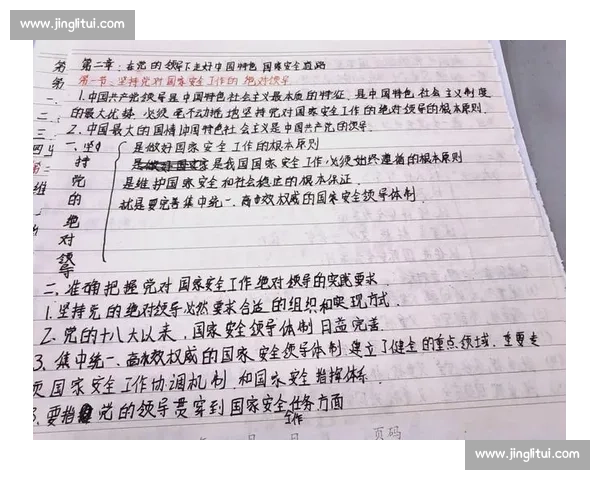 www.jinglitui.com
第二章:在党的领导下走好中国特色国家安全道路
第一节:坚持党对国家安全工作的绝对领导
1.中国共产党领导是中国特色社会主义最本质的特征,是中国特色社会主义制度
的最大优势,必须毫不动摇地坚持党对国家安全工作的绝对领导的根本原则.
2.中国最大的国情中国特色社会主义是中国共产党的领导.
一、坚持党的绝对领导
是做好国家安全工作的根本原则
是我国国家安全工作必须始终遵循的根本原则
是维护国家安全和社会稳定的根本保证.
就是要完善集中统一、高效权威的国家安全领导体制.
二、准确把握党对国家安全工作绝对领导的实践要求
1.坚持党的绝对领导必然要求合适的组织和实现方式.
2.党的十八大以来,国家安全领导体制日益完善.
3.集中统一、高效权威的国家安全领导体制,建立了健全的重点领域、重要专
项国家安全工作协调机制和国家安全指挥体系.
3.要把党的领导贯穿到国家安全任务方面
工作
页码
www.jinglitui.com